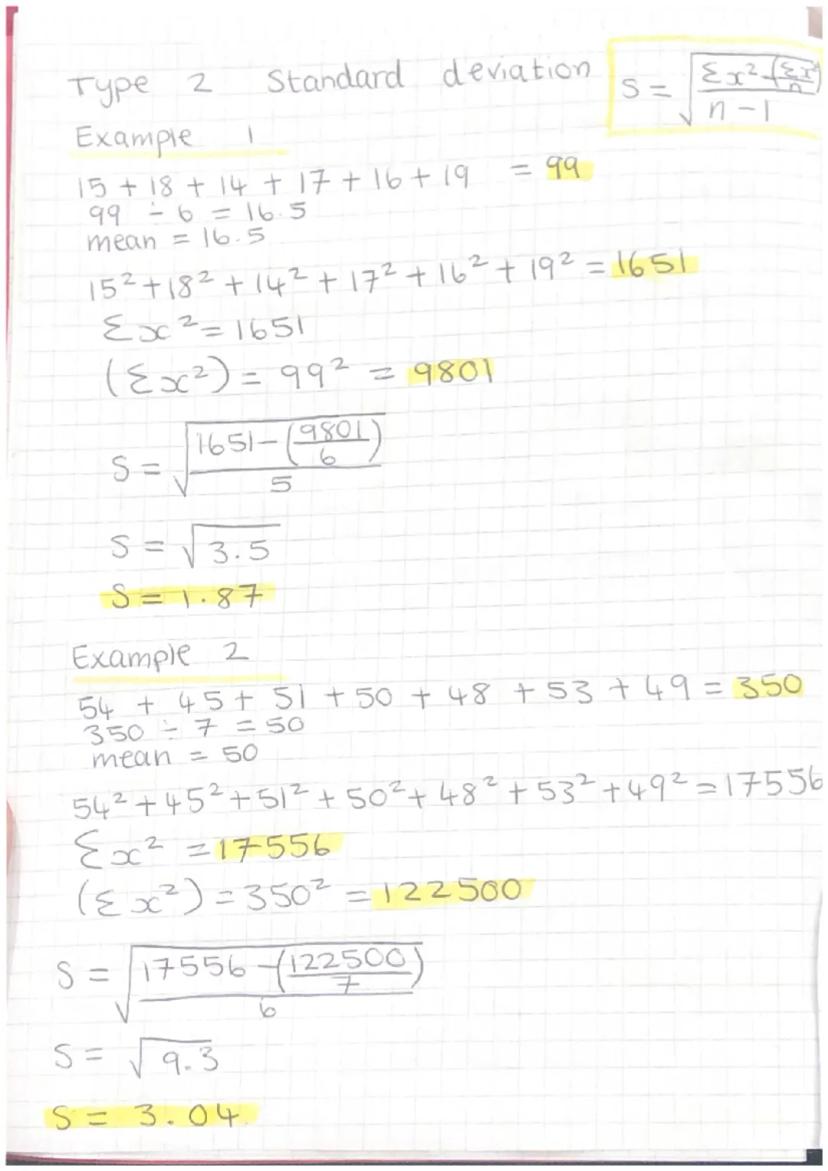 Type 2 Standard deviation S = √((Σx² - (Σx²/n)) / (n - 1))
Example 1
15 + 18 + 14 + 17 + 16 + 19 = 99
99 ÷ 6 = 16.5
mean = 16.5
15² + 18² + 14² + 17² + 16² + 19² = 1651
Σx² = 1651
(Σx²) = 99² = 9801
S = √((1651 - (9801/6)) / 5)
S = √3.5
S = 1.87
Example 2
54 + 45 + 51 + 50 + 48 + 53 + 49 = 350
350 ÷ 7 = 50
mean = 50
54² + 45² + 51² + 50² + 48² + 53² + 49² = 17556
Σx² = 17556
(Σx²) = 350² = 122500
S = √((17556 - (122500/7)) / 6)
S = √9.3
S = 3.04